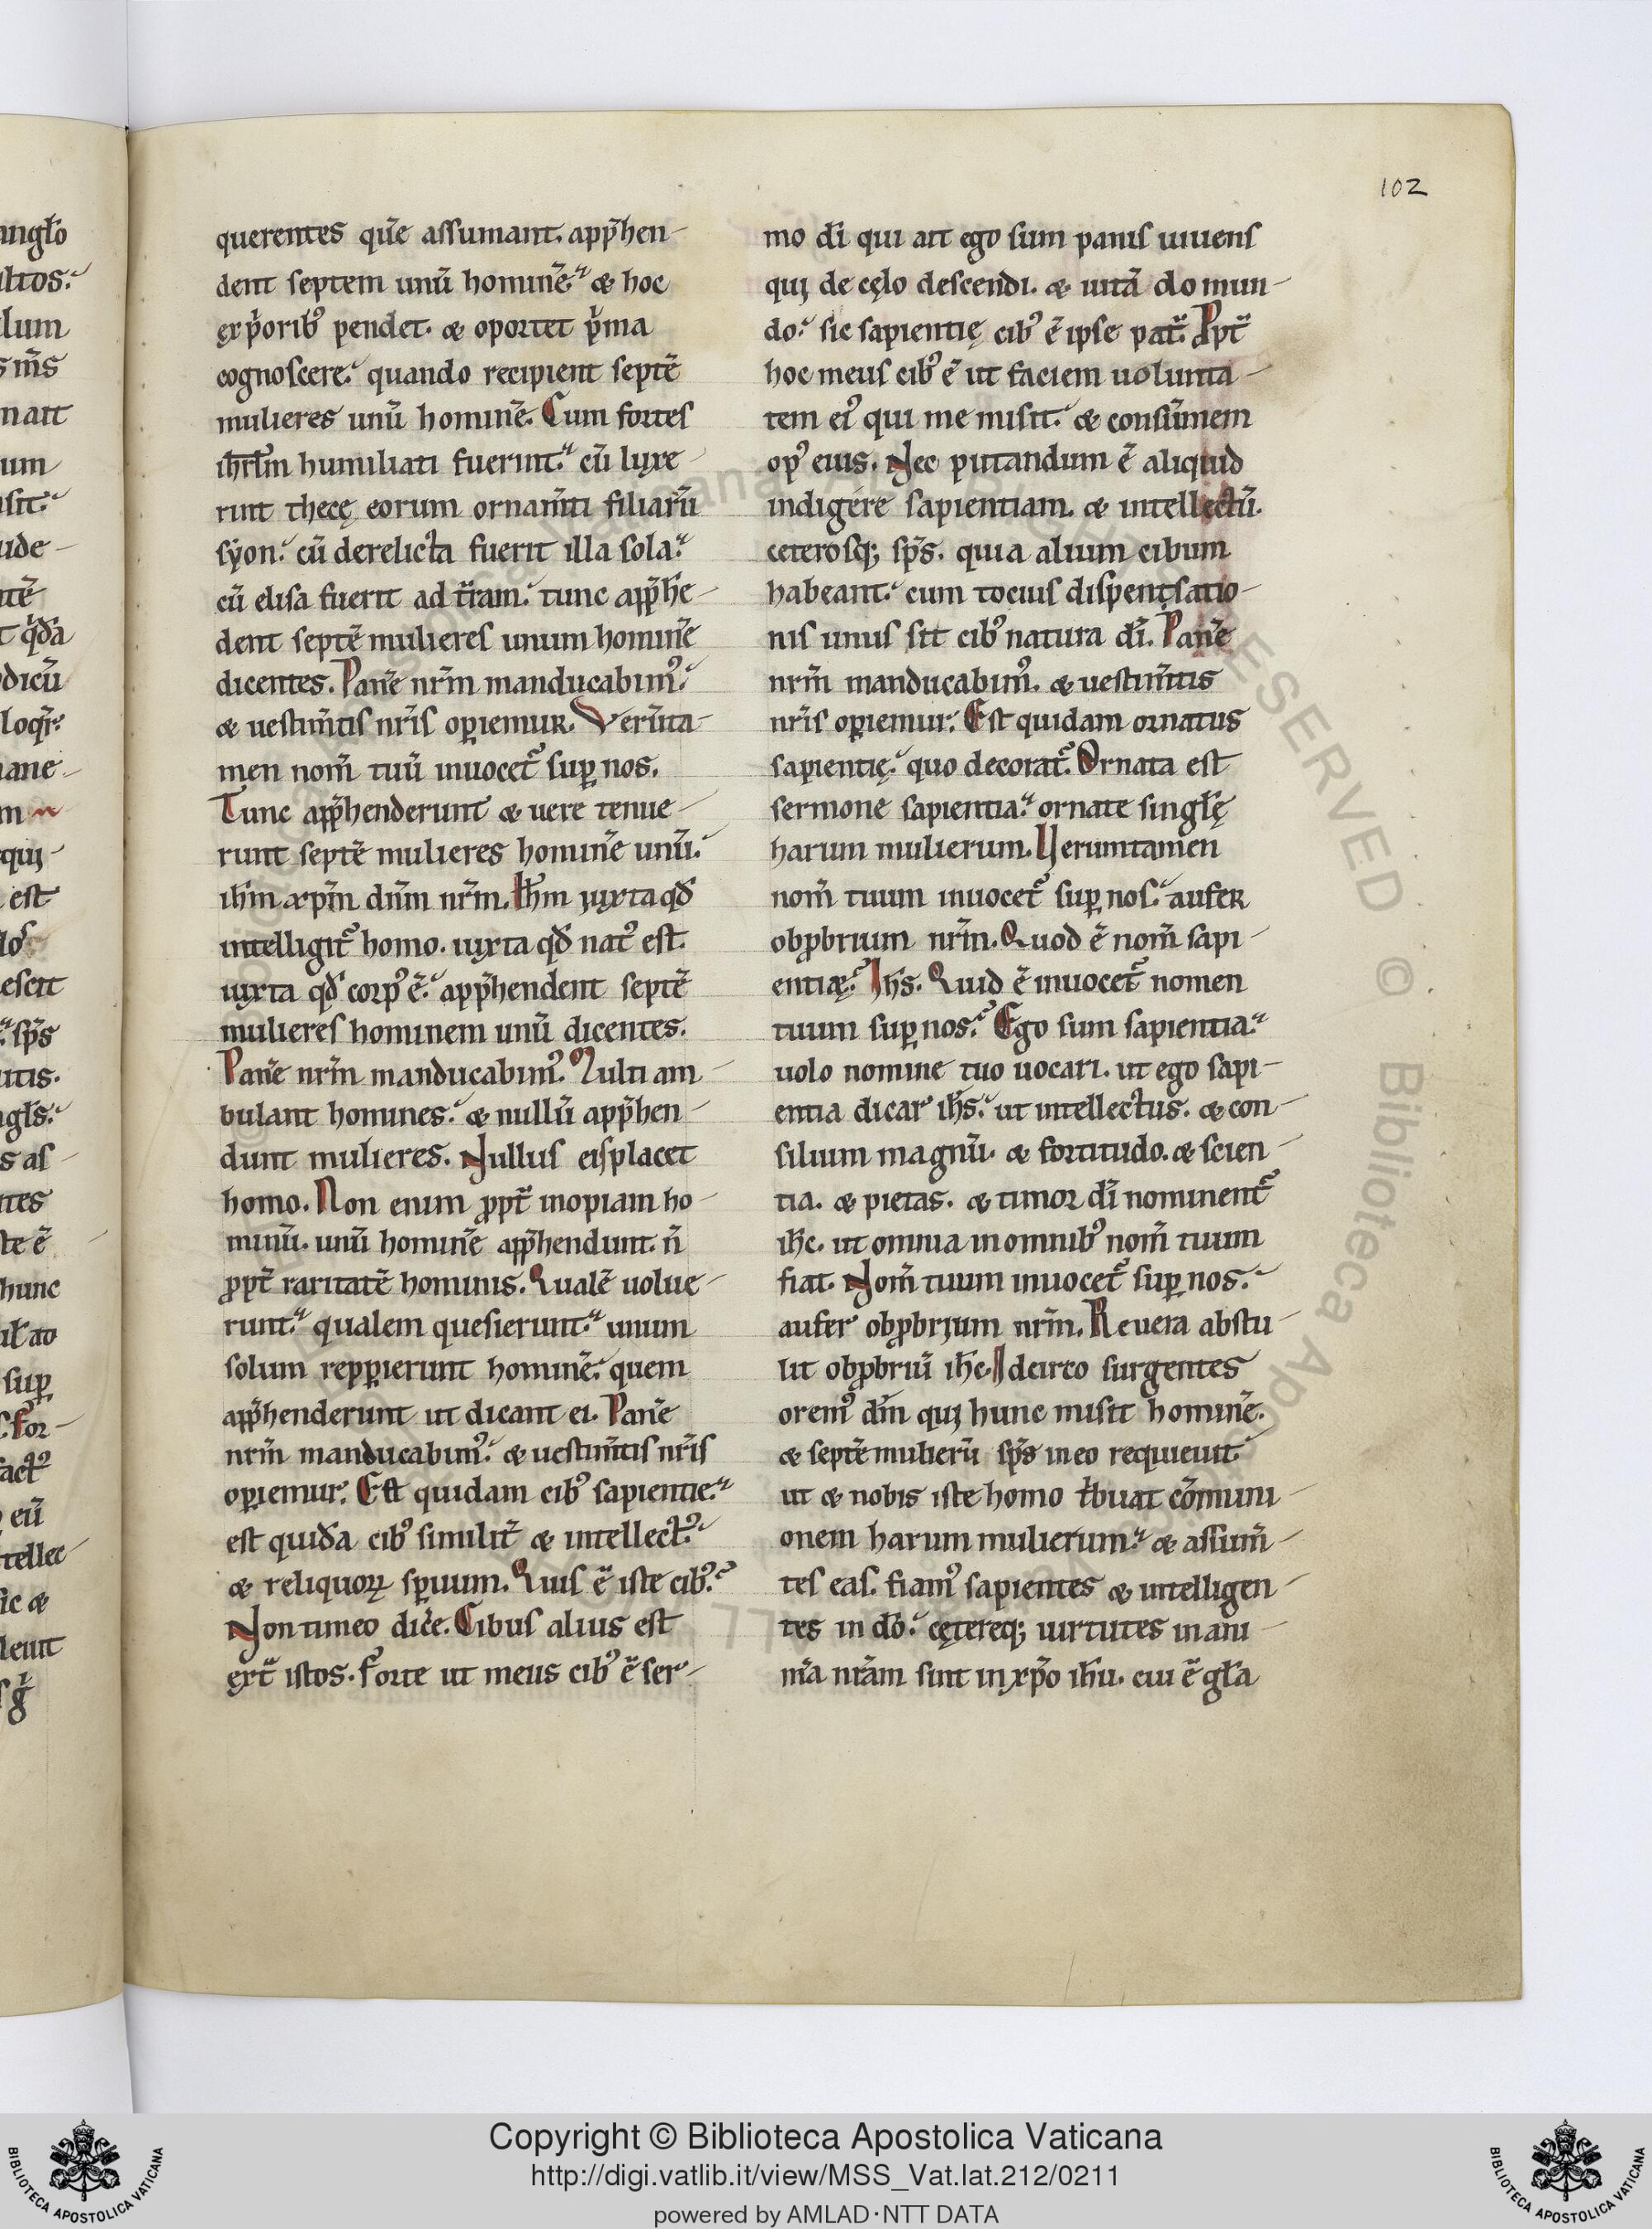 102
anglo
ltos.
lum
s ms
nait
um
sit.
ude
t qda
dicu
loqr.
iane
m
quj
est
los
escit
sps
utis.
gls.
s as
ntes
te ē
hunc
sup
for
eū
tellec
ic &
leuit
querentes quē assumant. app̄hen
dent septem unū hominē. & hoc
ex p̄orib⁹ pendet. & oportet p̄ma
cognoscere. quando recipient septē
mulieres unū hominē. Cum fortes
ihrl̄m humiliati fuerint. cū luxe
rint thecę eorum ornam̄ti filiarū
syon. cū derelicta fuerit illa sola.
cū elisa fuerit ad t̄ram. tunc app̄he
dent septē mulieres unum hominē
dicentes. Panē nr̄m manducabim⁹.
& uestim̄tis nr̄is opiemur. Verūta
men nom̄ tuū inuocet᷑ suꝑ nos.
Tunc app̄henderunt & uere tenue
runt septē mulieres hominē unū.
ihm xpm dn̄m nr̄m. Ihm iuxta qd̄
intelligit᷑ homo. iuxta qd̄ nat⁹ est.
iuxta qd̄ corp⁹ ē. app̄hendent septē
mulieres hominem unū dicentes.
Panē nr̄m manducabim⁹. Multi am
bulant homines. & nullū app̄hen
dunt mulieres. Nullus eis placet
homo. Non enim ꝓpt̄ inopiam ho
minū. unū hominē app̄hendunt. n̄
ꝓpt̄ raritatē hominis. Qualē uolue
runt. qualem quesierunt. unum
solum repꝑierunt hominē. quem
app̄henderunt ut dicant ei. Panē
nr̄m manducabim⁹. & uestim̄tis nr̄is
opiemur. Est quidam cib⁹ sapientie.
est quidā cib⁹ similit̄ & intellect⁹.
& reliquoꝝ spirituum. Quis ē iste cib⁹.
Non timeo dic̄e. Cibus alius est
ext̄ istos. Forte ut meus cib⁹ ē ser
mo dī qui ait ego sum panis uiuens
quj de cęlo descendi. & uitā do mun
do. sic sapientię cib⁹ ē ipse pat̄. Ꝓpt̄
hoc meus cib⁹ ē ut faciem uolunta
tem ei⁹ qui me misit. & consūmem
op⁹ eius. Nec putandum ē aliquid
indigere sapientiam. & intellectū.
ceterosq; sp̄s. quia alium cibum
habeant. cum tocius dispensatio
nis unus sit cib⁹ natura dī. Panē
nr̄m manducabim⁹. & uestim̄tis
nr̄is opiemur. Est quidam ornatus
sapientię. quo decorat᷑. Ornata est
sermone sapientia. ornate singlę
harum mulierum. Verumtamen
nom̄ tuum inuocet᷑ suꝑ nos. aufer
obꝓbrium nr̄m. Quod ē nom̄ sapi
entię. Ihs. Quid ē inuocet᷑ nomen
tuum suꝑ nos. Ego sum sapientia.
uolo nomine tuo uocari. ut ego sapi
entia dicar ihs. ut intellectus. & con
silium magnū. & fortitudo. & scien
tia. & pietas. & timor dī nominent᷑
ihc. ut omnia in omnib⁹ nom̄ tuum
fiat. Nom̄ tuum inuocet᷑ suꝑ nos.
aufer obꝓbrjum nr̄m. Reuera abstu
lit obꝓbriū ihc. Idcirco surgentes
orem⁹ dm̄ quj hunc misit hominē.
& septē mulierū sp̄s in eo requieuit
ut & nobis iste homo t̄buat cōmuni
onem harum mulierum. & assum̄
tes eas. fiam⁹ sapientes & intelligen
tes in dō. cętereq; uirtutes in ani
ma nr̄am sint in xp̄o ihu. cui ē gla
Copyright © Biblioteca Apostolica Vaticana
http://digi.vatlib.it/view/MSS_Vat.lat.212/0211
powered by AMLAD·NTT DATA
BIBLIOTECA APOSTOLICA VATICANA
BIBLIOTECA APOSTOLICA VATICANA